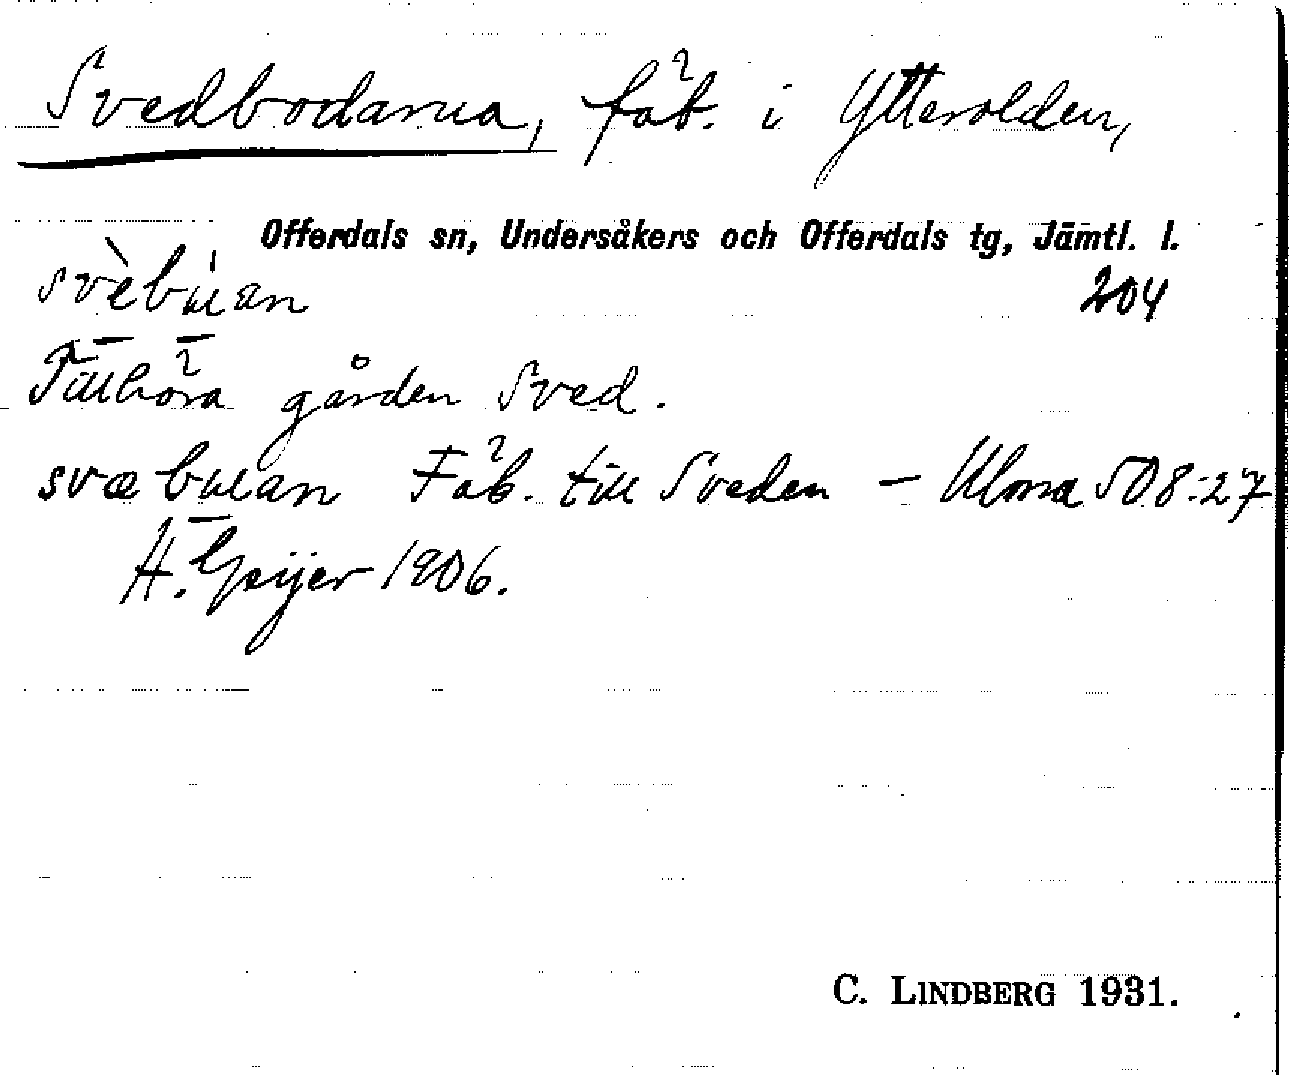 Svedbodarna, fäb. i Ytterolden,
Offerdals sn, Undersåkers och Offerdals tg, Jämtl. l.
svèbu̍an 204
Tillhöra gården Sved.
svæbuan Fäb. till Sveden – Ulma 508:27
H. Geijer 1906.
C. LINDBERG 1931.